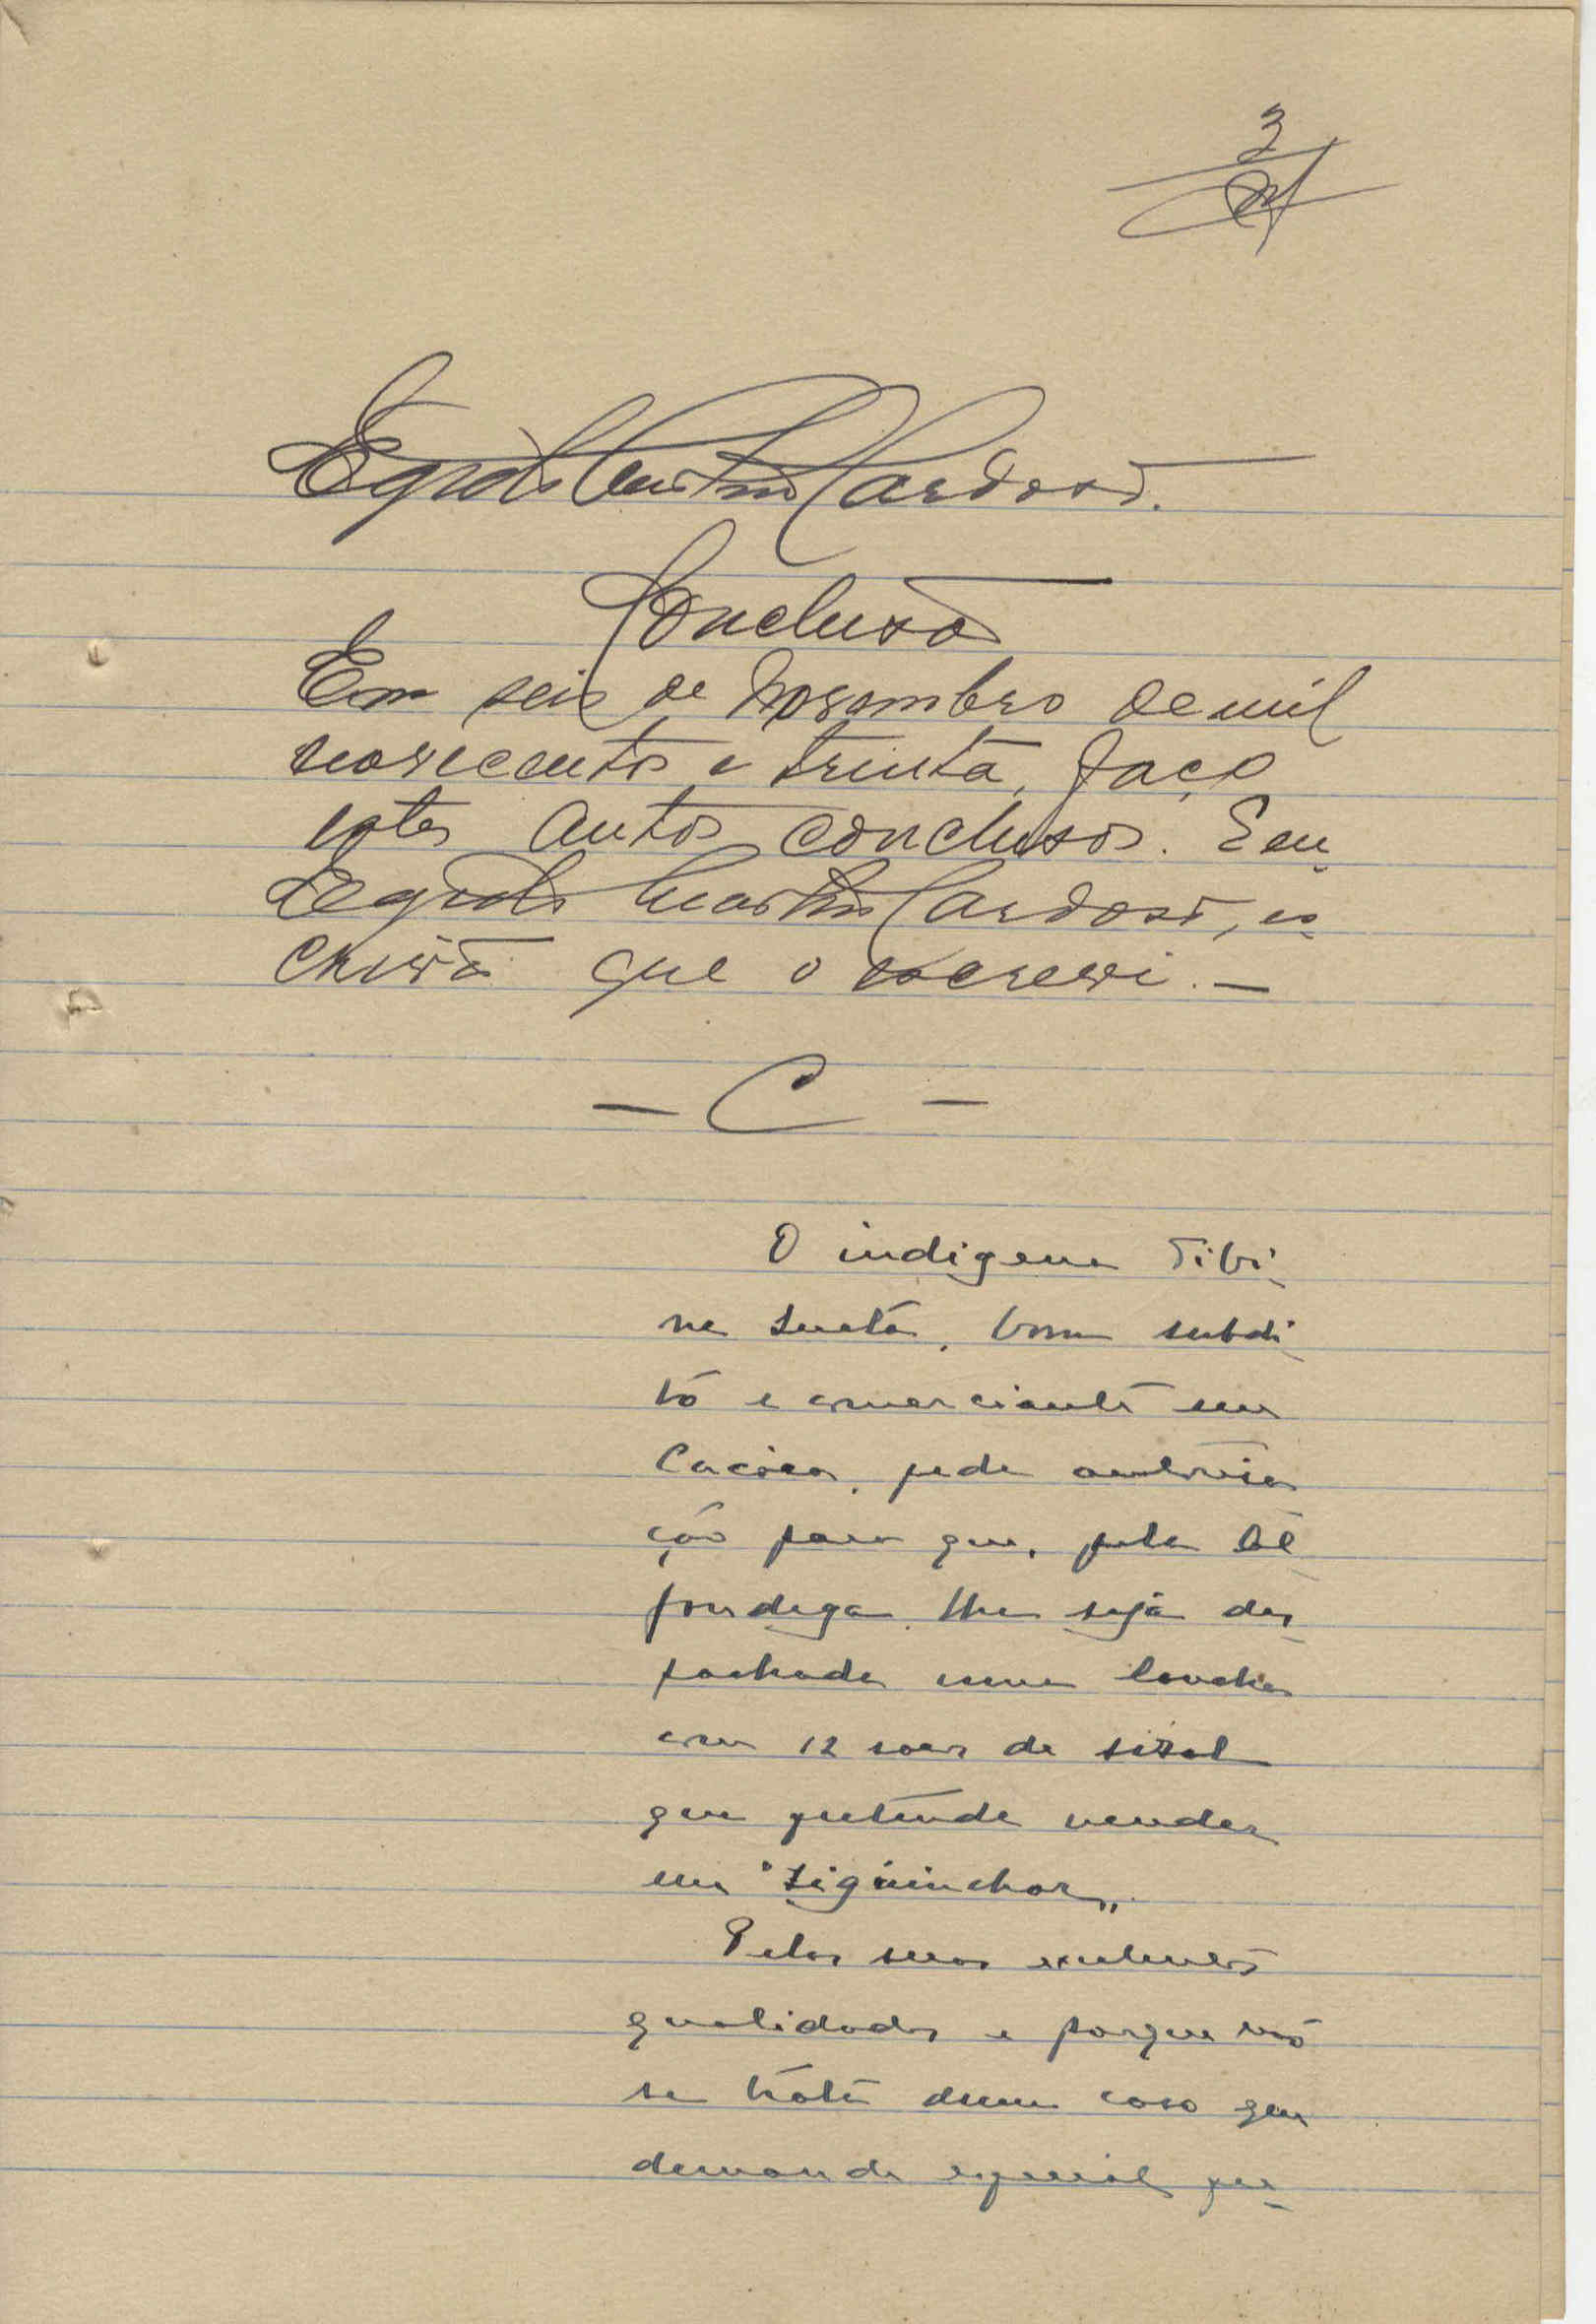 3
Cardoso.
Conclusão
Em seis de Novembro de mil
novecentos e trinta, faço
estes autos conclusos. Eeu
Martins Cardoso, es-
crivão que o escrevi. —
— C —
O indigena Tibi-
na bom subdi-
to e comerciante em
pede autorisa
ção para que, pela Al-
fondega lhe seja des-
pachada uma lancha
com 12 de sisal
que pretende vender
em "Siguinchor„.
Pelas suas excelentes
qualidades e porque não
se trata dum caso que
demande especial pon-